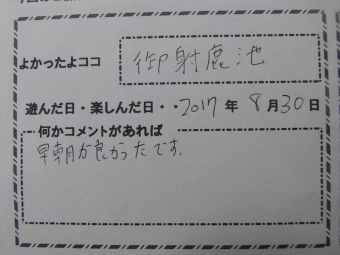 よかったよココ 御射鹿池
遊んだ日・楽しんだ日・・2017年8月30日
何かコメントがあれば
早朝が良かったです。